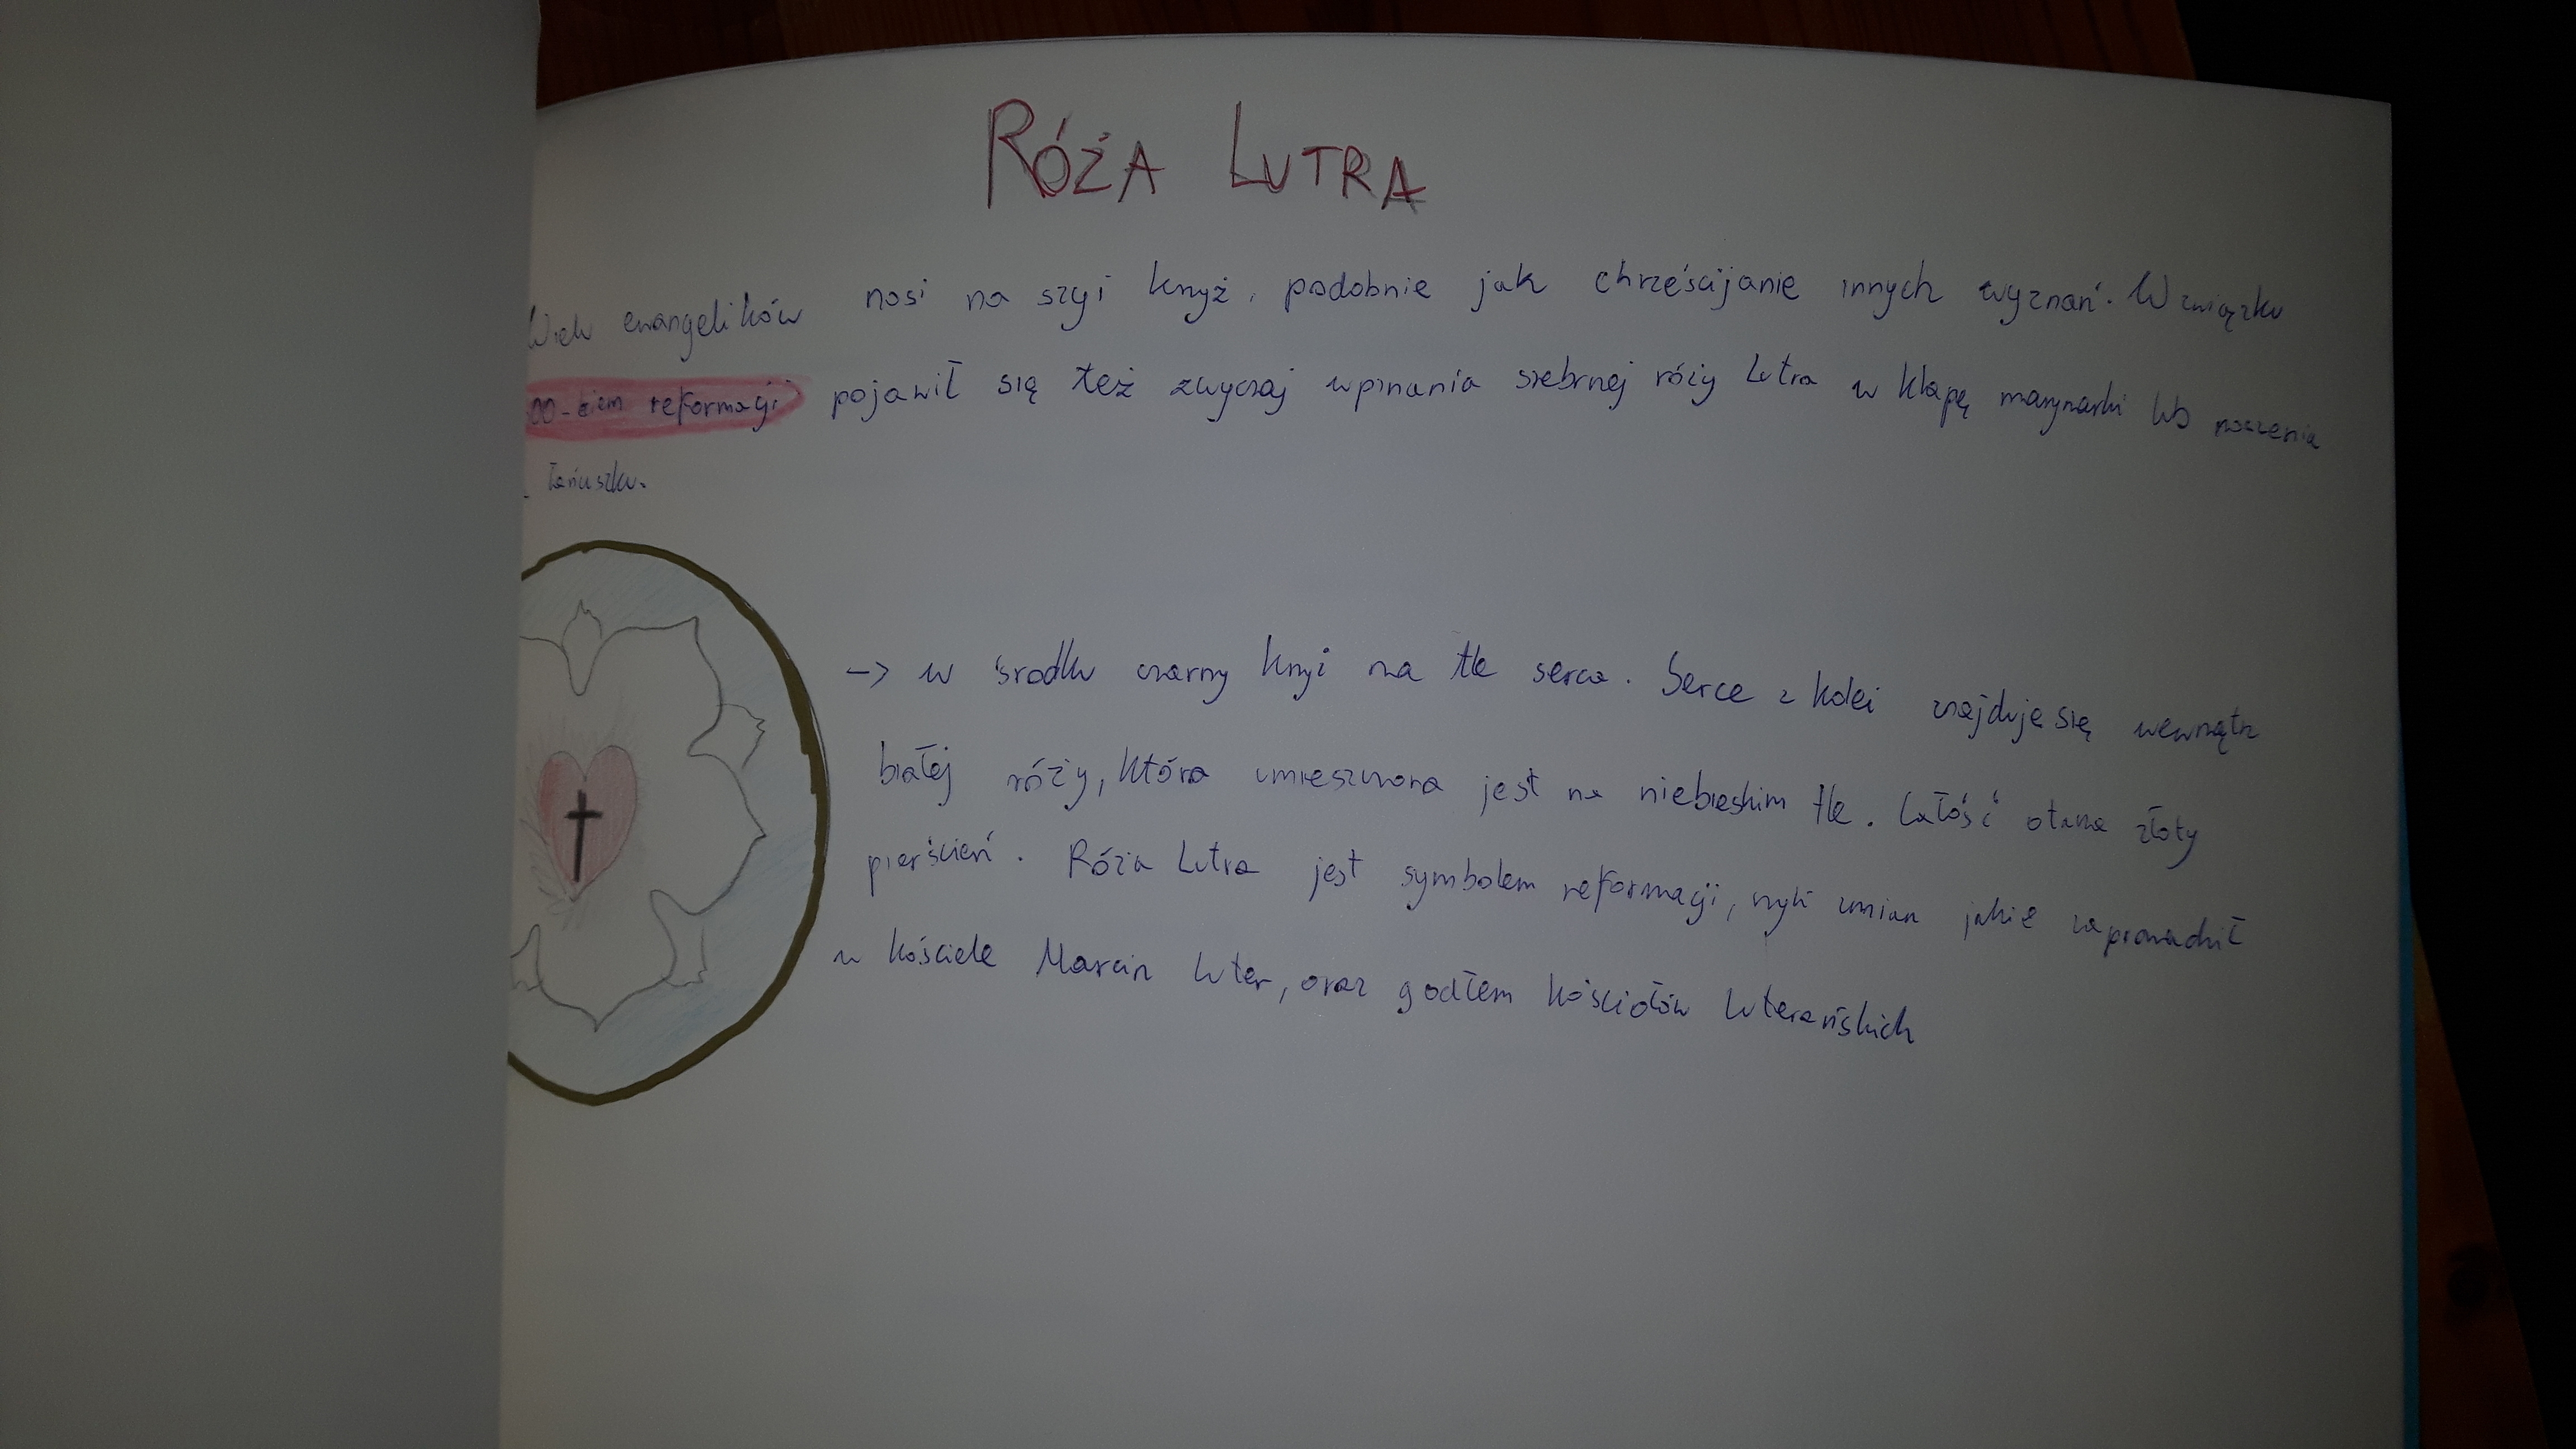 RÓŻA LUTRA
Wielu ewangelików nosi na szyi krzyż, podobnie jak chrześcijanie innych wyznań. W związku
00-leciem reformacji pojawił się też zwyczaj wpinania srebrnej róży Lutra w klapę marynarki lub noszenia
łańcuszku.
-> w środku czarny krzyż na tle serca. Serce z kolei znajduje się wewnątrz
białej róży, która umieszczona jest na niebieskim tle. Całość otacza złoty
pierścień. Róża Lutra jest symbolem reformacji, czyli zmian jakie zaprowadził
w kościele Marcin Luter, oraz godłem kościołów luterańskich